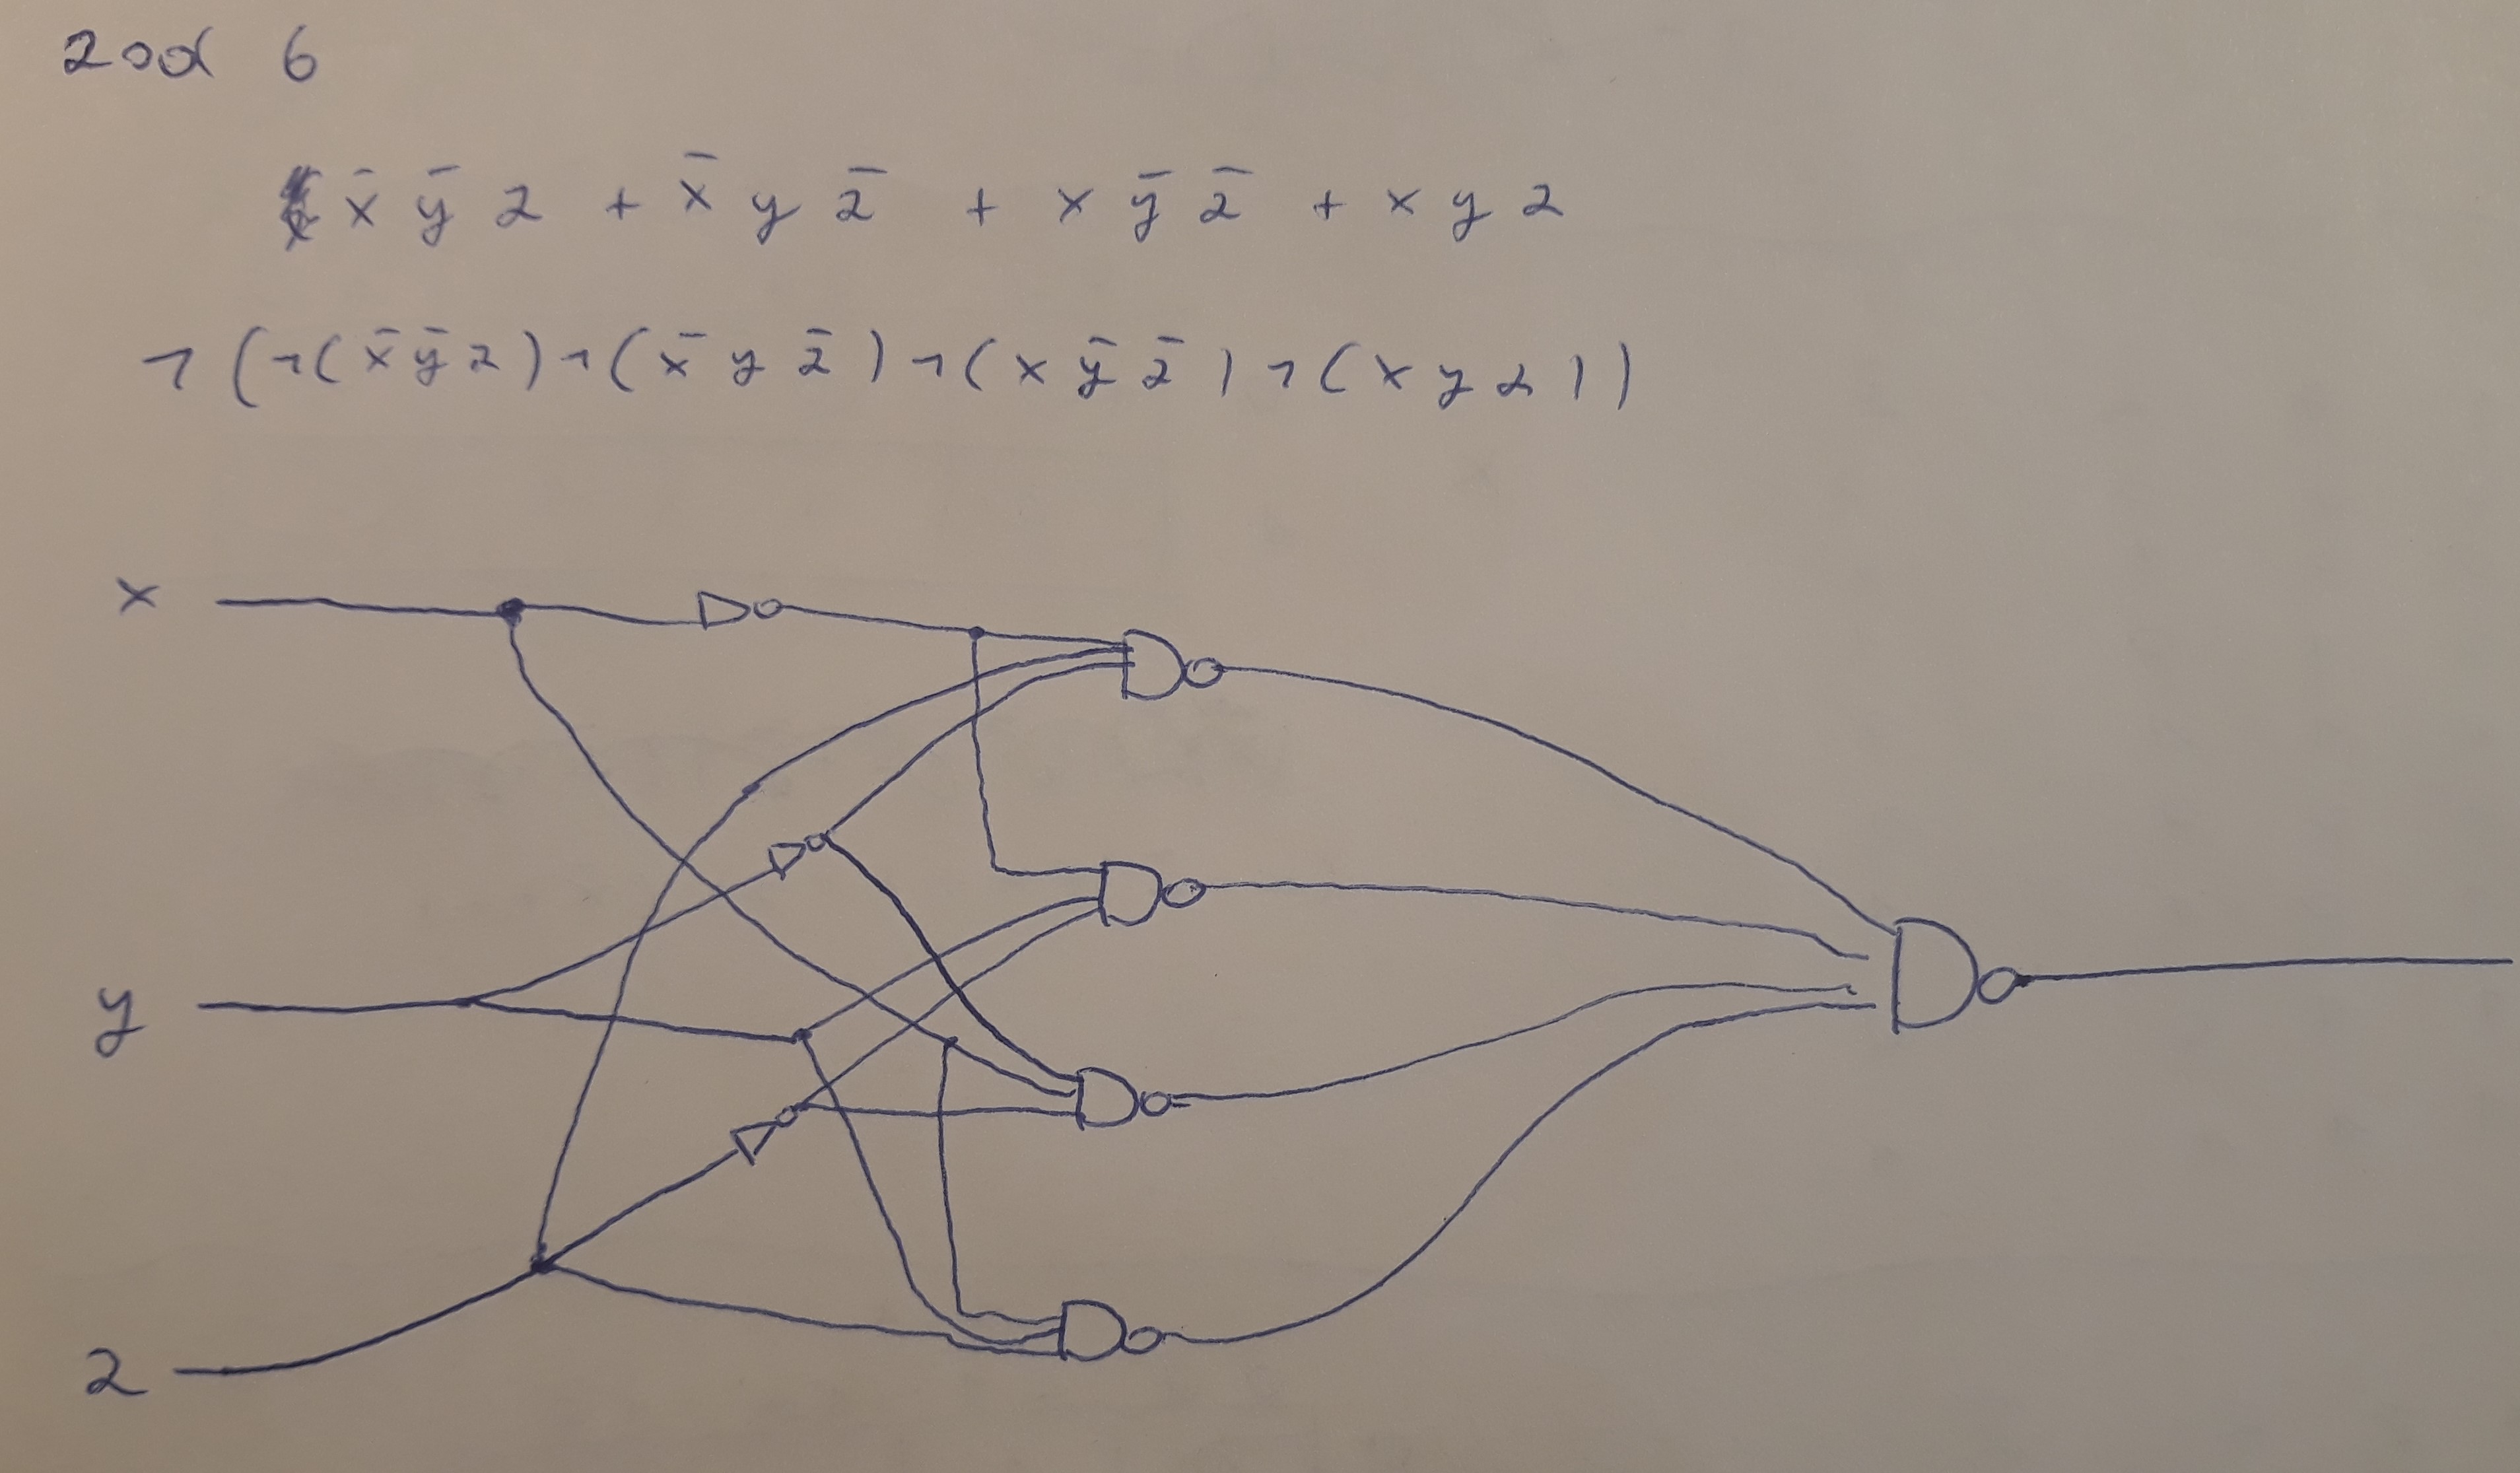 zad 6
x̄ ȳ z + x̄ y z̄ + x ȳ z̄ + x y z
¬(¬(x̄ ȳ z)¬(x̄ y z̄)¬(x ȳ z̄)¬(x y z))
x
y
z